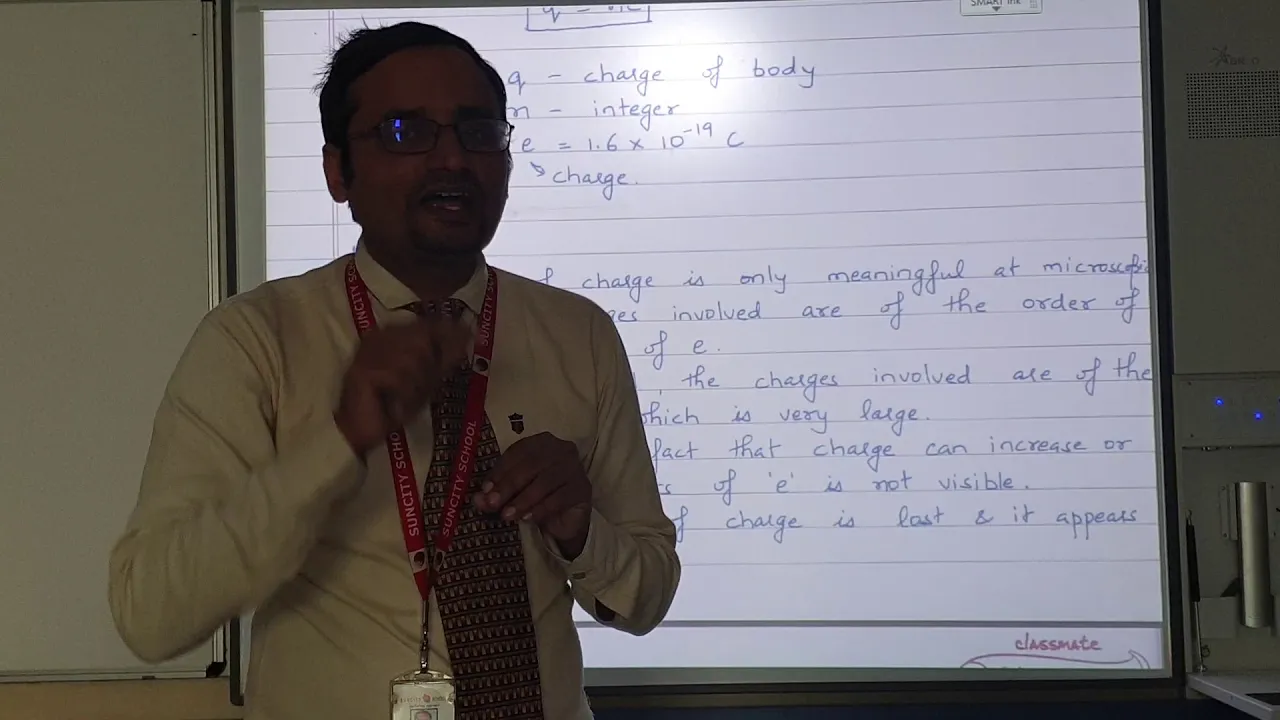 SMART Ink
q = ne
q - charge of body
n - integer
e = 1.6 × 10⁻¹⁹ C
charge.
of charge is only meaningful at microscopic
involved are of the order of
of e.
, the charges involved are of the
which is very large.
fact that charge can increase or
of 'e' is not visible.
of charge is lost & it appears
classmate
SUNCITY SCHOOL
SUNCITY SCHOOL
SUNCITY SCHOOL
SUNCITY SCHOOL